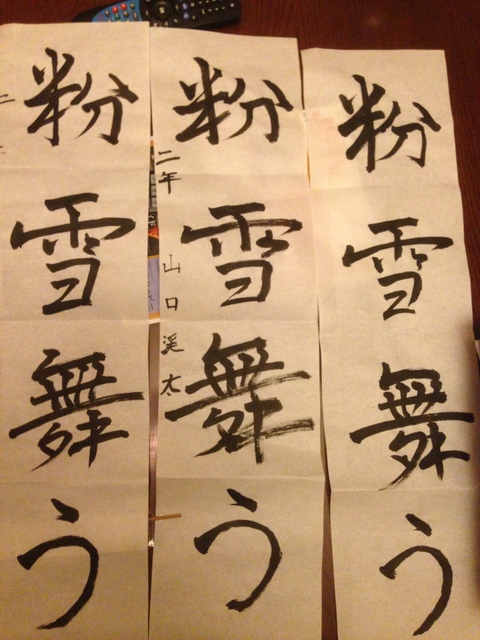 粉雪舞う
粉雪舞う
二年 山口 渓太
粉雪舞う